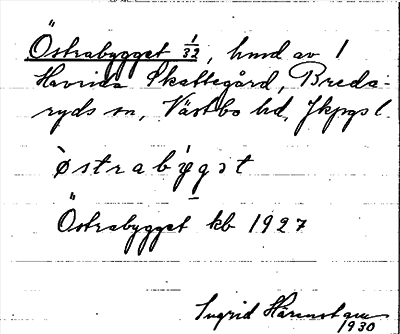 Östrabygget 1/32, hmd av 1
Havrida Skattegård, Breda-
ryds sn, Västbo hd, Jkpgs l.
òstrabýgət
Östrabygget kb 1927
Ingrid
1930